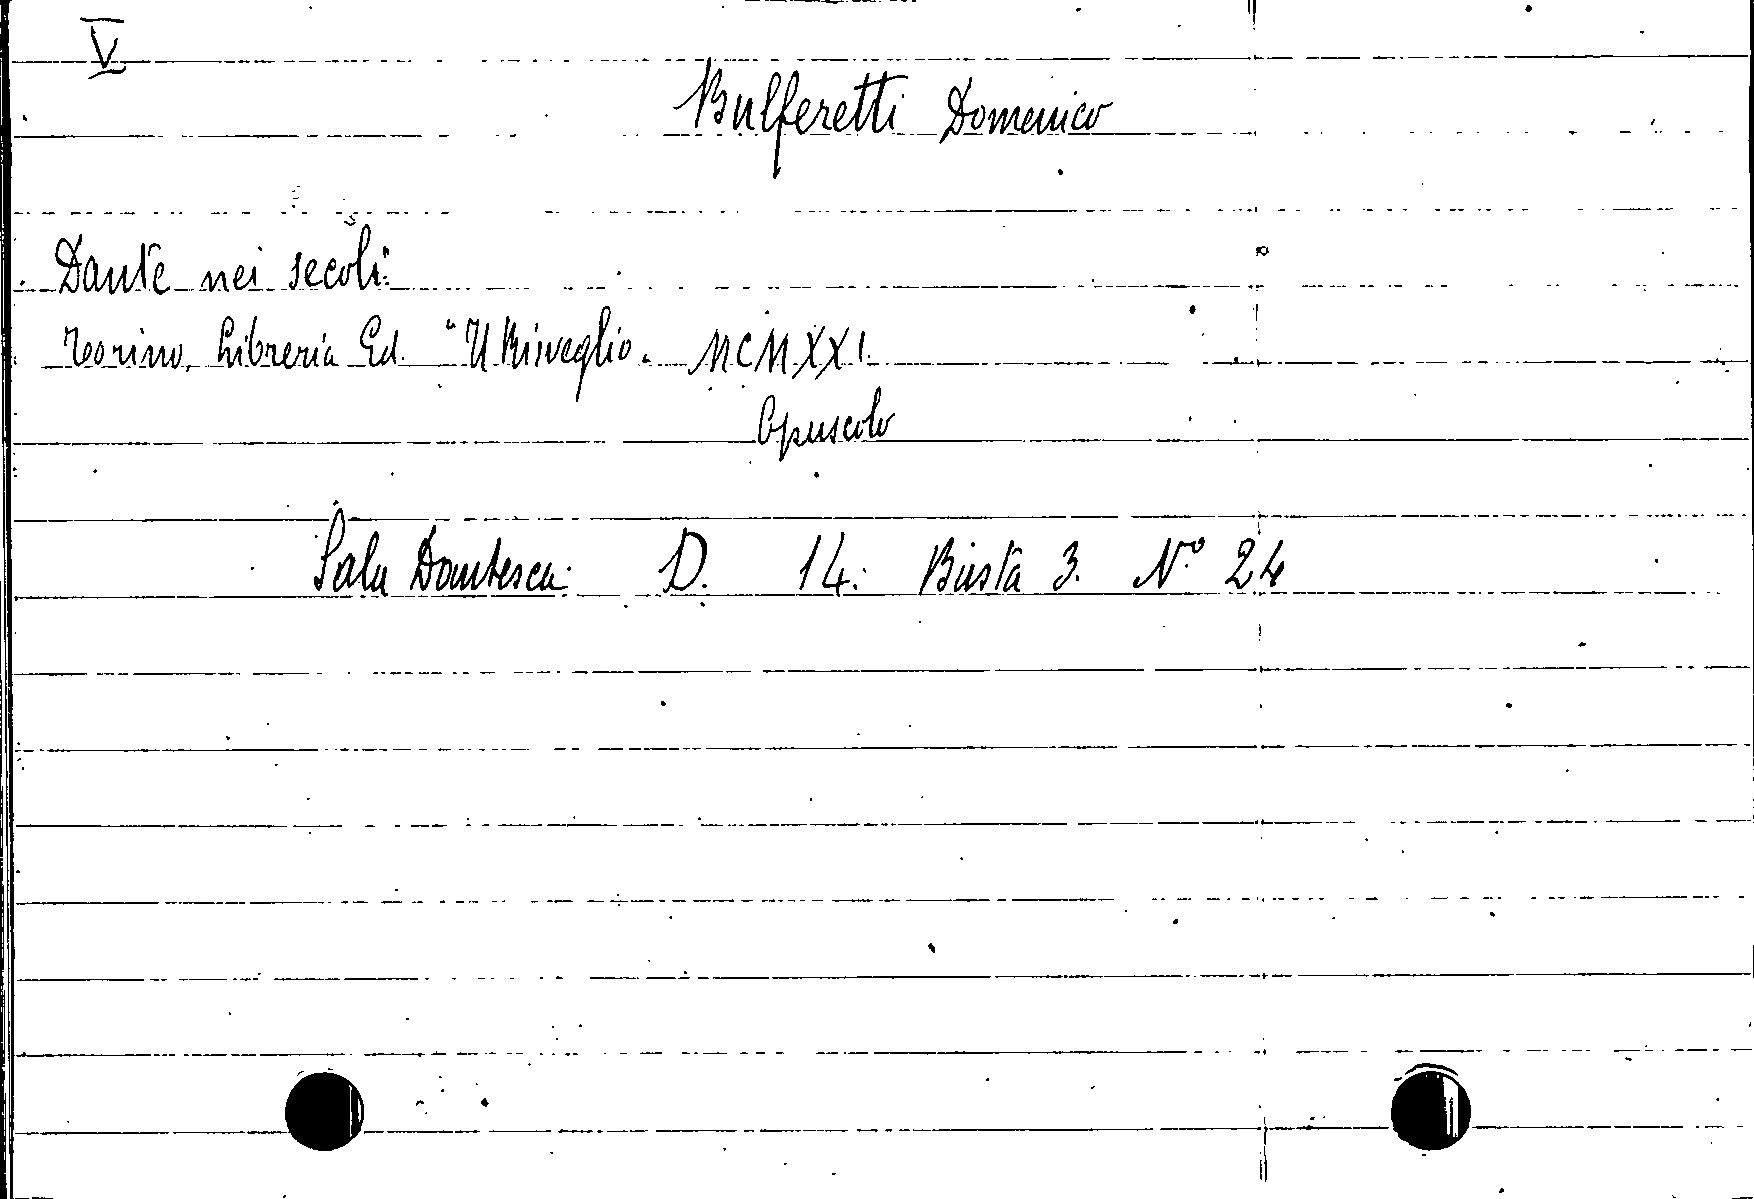 V
Bulferetti Domenico
Dante nei secoli.
Torino, Libreria Ed. "Il Risveglio. MCMXXI.
Opuscolo
Sala Dantesca. D. 14. Busta 3. N.° 24